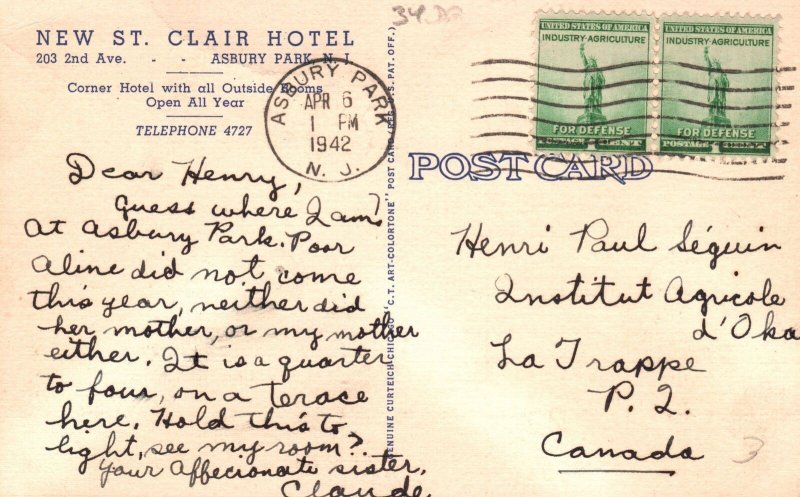 34.
NEW ST. CLAIR HOTEL
203 2nd Ave. - - ASBURY PARK, N. J.
Corner Hotel with all Outside Rooms
Open All Year
TELEPHONE 4727
ASBURY PARK
APR 6
1 PM
1942
N. J.
UNITED STATES OF AMERICA
INDUSTRY-AGRICULTURE
FOR DEFENSE
POSTAGE CENT
UNITED STATES OF AMERICA
INDUSTRY-AGRICULTURE
FOR DEFENSE
POSTAGE 1 CENT
POST CARD
GENUINE CURTEICH-CHICAGO "C.T. ART-COLORTONE" POST CARD (REG. U.S. PAT. OFF.)
Dear Henry,
Guess where I am?
At Asbury Park. Poor
Aline did not come
this year, neither did
her mother, or my mother
either. It is a quarter
to four, on a terace
here. Hold this to
light, see my room?.
Your Affecionate sister,
Claude
Henri Paul Séguin
Institut Agricole
d'Oka
La Trappe
P. Q.
Canada
3